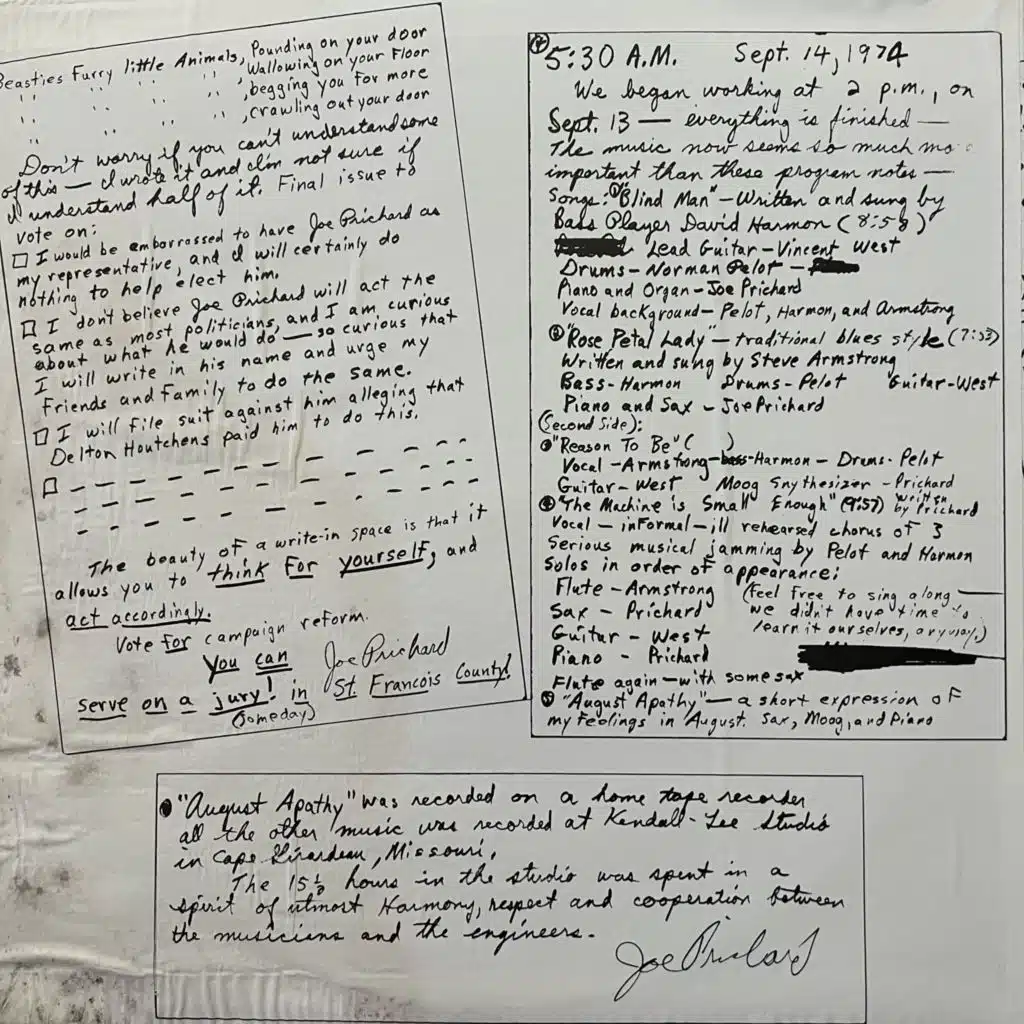 Beasties Furry little Animals, Pounding on your door
" " " " , Wallowing on your Floor
" " " " , begging you for more
" " " " , crawling out your door
Don't worry if you can't understand some
of this — I wrote it and I'm not sure if
I understand half of it. Final issue to
vote on:
☐ I would be embarrassed to have Joe Prichard as
my representative, and I will certainly do
nothing to help elect him.
☐ I don't believe Joe Prichard will act the
same as most politicians, and I am curious
about what he would do — so curious that
I will write in his name and urge my
Friends and Family to do the same.
☐ I will File suit against him alleging that
Delton Houtchens paid him to do this.
☐ — — — — — — — — —
The beauty of a write-in space is that it
allows you to think for yourself, and
act accordingly.
Vote for campaign reform.
You can
serve on a jury! in
(someday)
Joe Prichard
St. Francois County!
④ 5:30 A.M. Sept. 14, 1974
We began working at 2 p.m., on
Sept. 13 — everything is finished —
The music now seems so much mo
important than these program notes —
Songs: ① "Blind Man" — Written and sung by
Bass Player David Harmon (8:58)
Lead Guitar — Vincent West
Drums — Norman Pelot —
Piano and Organ — Joe Prichard
Vocal background — Pelot, Harmon, and Armstrong
② "Rose Petal Lady" — traditional blues style (7:53)
Written and sung by Steve Armstrong
Bass - Harmon Drums - Pelot Guitar - West
Piano and Sax - Joe Prichard
(Second Side):
③ "Reason To Be" ( )
Vocal - Armstrong - bass - Harmon - Drums - Pelot
Guitar - West Moog Snythesizer - Prichard
④ "The Machine is Small Enough" (9:57) written by Prichard
Vocal — informal — ill rehearsed chorus of 3
Serious musical jamming by Pelot and Harmon
Solos in order of appearance:
Flute - Armstrong (Feel free to sing along —
Sax - Prichard we didn't have time to
Guitar - West learn it ourselves, anyway.)
Piano - Prichard
Flute again — with some sax
⑤ "August Apathy" — a short expression of
my feelings in August. Sax, Moog, and Piano
"August Apathy" was recorded on a home tape recorder
all the other music was recorded at Kendall-Lee Studio
in Cape Girardeau, Missouri.
The 15½ hours in the studio was spent in a
spirit of utmost Harmony, respect and cooperation between
the musicians and the engineers.
Joe Prichard